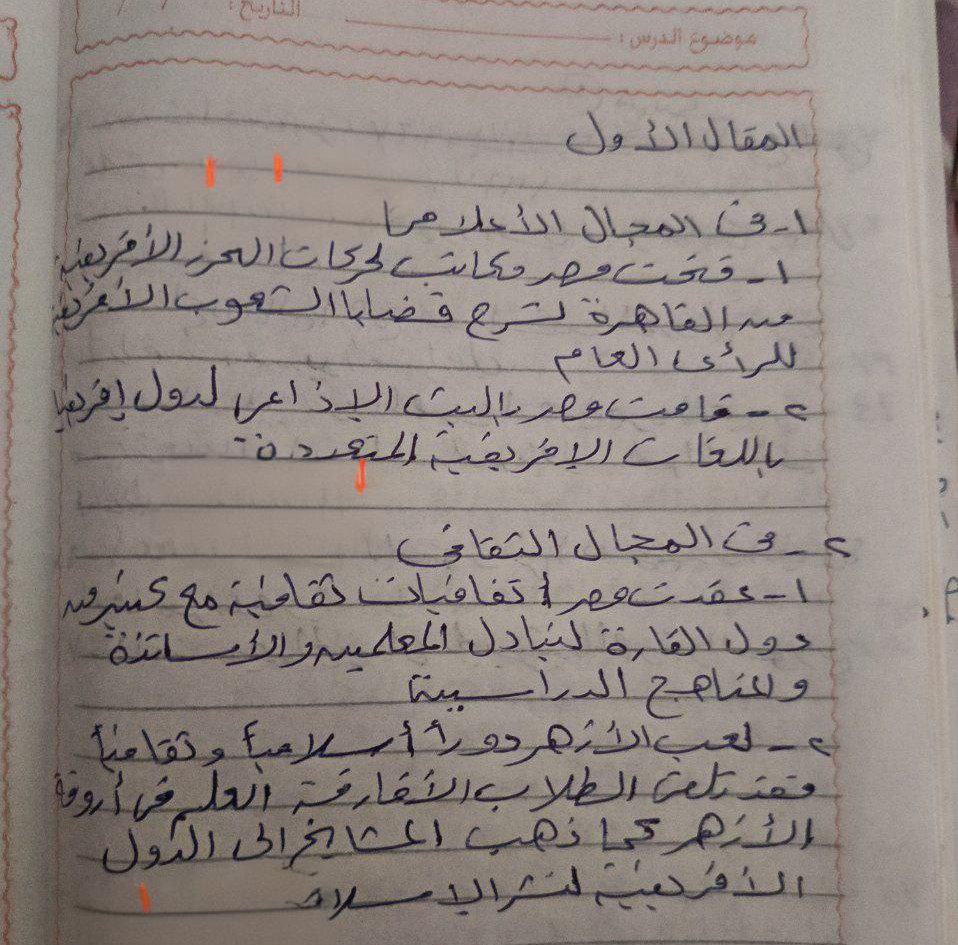 التاريخ: / /
موضوع الدرس:
المقال الأول
١- فى المجال الأعلامى
١- فتحت مصر مكاتب لحركات التحرر الأفريقية
فى القاهرة لشرح قضايا الشعوب الأفريقية
للرأى العام
٢- قامت مصر بالبث الإذاعى لدول إفريقيا
باللغات الإفريقية المتعددة
٢- فى المجال الثقافى
١- عقدت مصر اتفاقيات ثقافية مع كثير من
دول القارة لتبادل المعلمين والأساتذة
والمناهج الدراسية
٢- لعب الأزهر دوراً أسلامياً وثقافياً
فقد تلقى الطلاب الأفارقة العلم فى أروقة
الأزهر كما ذهب المشايخ الى الدول
الأفريقية لنشر الإسلام